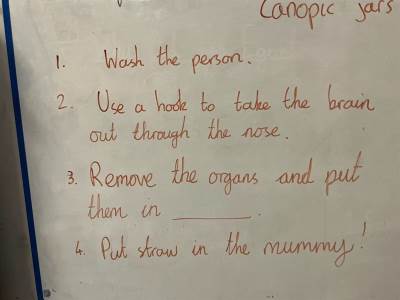 Canopic jars
1. Wash the person.
2. Use a hook to take the brain
out through the nose.
3. Remove the organs and put
them in ________.
4. Put straw in the mummy!